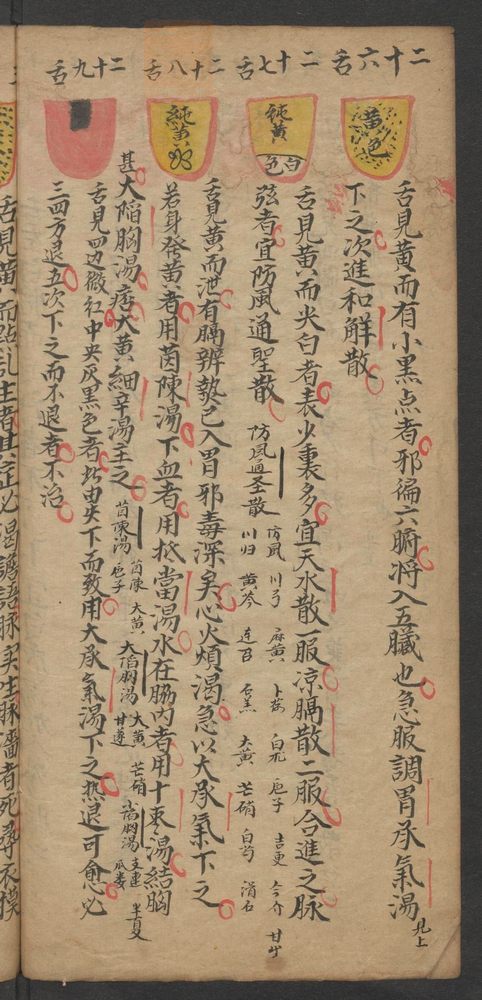 二十六舌
黄色
舌見黄而有小黑点者邪徧六腑将入五臓也急服調胃承氣湯見上
下之次進和解散
二十七舌
純黄
白色
舌見黄而尖白者表少裏多宜天水散一服凉膈散二服合進之脉
弦者宜防風通聖散
防風通圣散
防風 川芎 麻黄 卜苛 白朮 卮子 吉更 甘艸
川归 黄芩 連召 石羔 大黄 芒硝 白芍 滑石
二十八舌
純黄
舌見黄而泄有膈辨熱已入胃邪毒深矣心火煩渴急以大承氣下之
若身發黄者用茵陳湯下血者用抵當湯水在脇内者用十枣湯結胸
甚大陷胸湯痞大黄細辛湯主之
茵陳湯
茵陳 大黄
卮子
大陷胸湯
大黄 芒硝
甘遂
小陷胸湯
半夏
瓜蒌
二十九舌
舌見四边微红中央灰黑色者此由失下而致用大承氣湯下之热退可愈必
三四方退五次下之而不退者不治
舌見黄而黑点乱生者其症必渴譫語脉实生脉濇者死